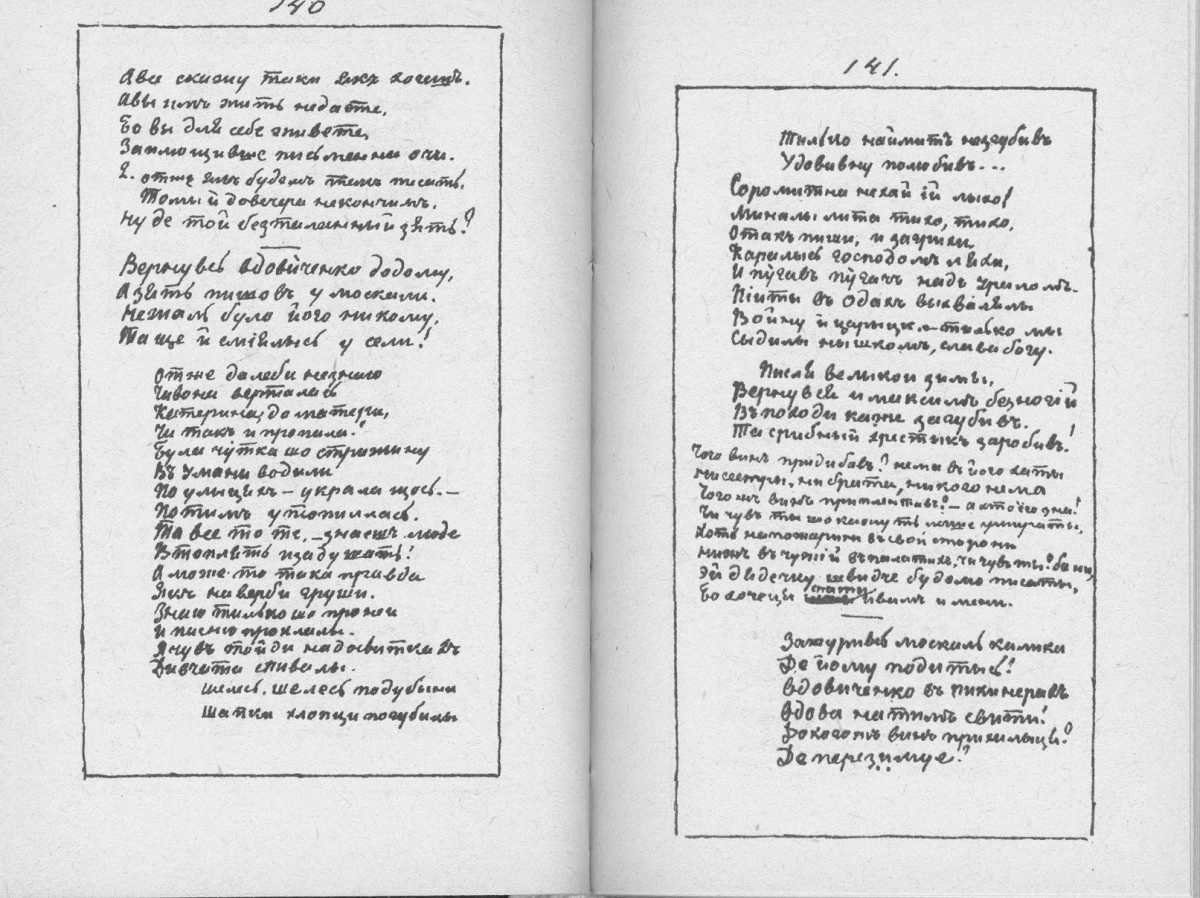 140
А все скажу таки якъ хочешъ.
А вы имъ жить недаєте,
Бо вы для себе живете,
Заплющивше письменни очи.
Е. отже ямъ будемъ темъ писать,
То мы й довечера некончимъ.
Ну де той безталанный зять?
Вернувсь вдовиченко додому,
А зять пишовъ у москали.
Нежаль було його никому,
Та ще й сміялысь у сели!
Отже далеби незнаю
Чи вона верталась
Катерина, до матери,
Чи такъ и пропала!
Була чутка шо стрижину
Въ Умани водили
По улыцихъ — украла щось. —
Потимъ утопилась.
Та все то те, — знаешъ люде
Втоплять и задушать!
А може то така правда
Якъ на верби груши.
Знаю тилько шо про неи
И писню проклалы.
Я чувъ той ди на досвиткахъ
Дивчата спивалы.
Шелесь, шелесь по дубыни
Шапки хлопци погубылы
141.
Тилько наймитъ незгубивъ
Удовивну полюбивъ...
Соромитна нехай ій лыхо!
Миналы лита тихо, тихо,
Отакъ пиши, и за грихи
Каралысь господомъ ляхи,
И пугавъ пугачъ надъ Ураломъ.
Піиты въ одахъ выхвалялы
Войну й царицю — тилько мы
Сыдилы нышкомъ, слава богу.
Писля великои зимы,
Вернувся и максимъ безногій
Въ походи каже загубивъ.
Та срибный хрестыкъ заробивъ!
Чого винъ придибавъ? нема въ його хаты
Ни сестры, ни брата, никого нема
Чого жъ винъ приплентавъ? — а хто его зна!
Чи чувъ ты шо кажуть лучше
Хоть на пожарини въ свой стороны
Нижъ въ чужій въ палатахъ, чи чувъ ты? ба ни,
Эй дидечку швидче будемо писаты,
Бо хочеця спаты й вамъ и мени.
Зажурывсь москаль калика
Де йому подитысь!
Вдовиченко въ пикинерахъ
Вдова на тимъ свити!
До когожъ винъ прихылыця?
Де перезимує?